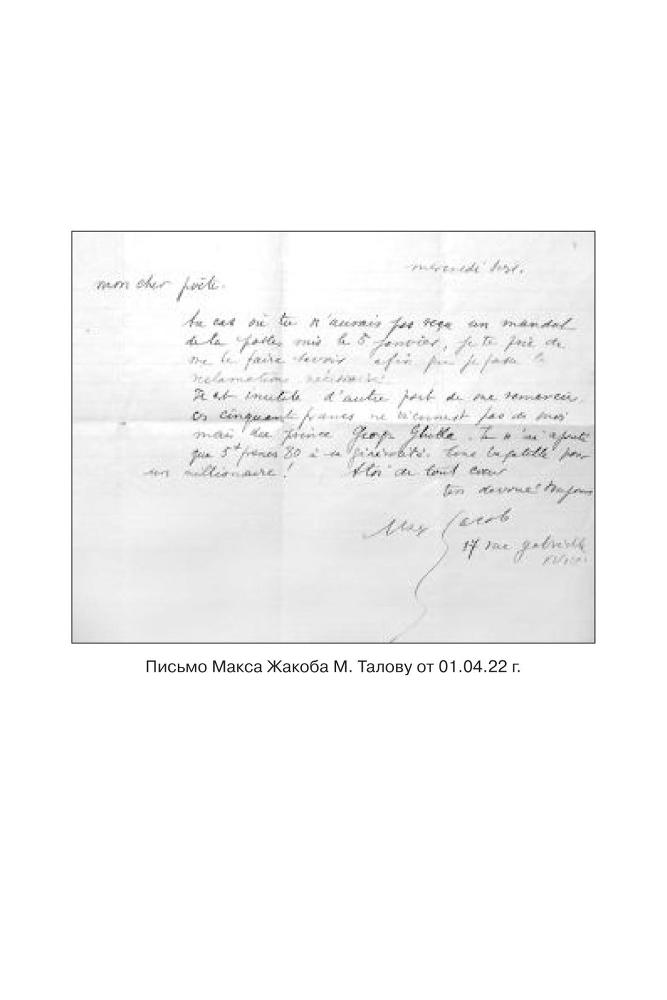 mercredi soir.
mon cher poète.
Au cas où tu n'aurais pas reçu un mandat
de la poste mis le 5 janvier, je te prie de
me le faire savoir afin que je fasse la
réclamation nécessaire.
Il est inutile d'autre part de me remercier.
ces cinquante francs ne viennent pas de moi
mais du prince Georges Ghika. Je n'ai ajouté
que 5 francs 80 à sa générosité. une bagatelle pour
un millionnaire! A toi de tout cœur
ton dévoué toujours
Max Jacob
17 rue gabrielle
Письмо Макса Жакоба М. Талову от 01.04.22 г.